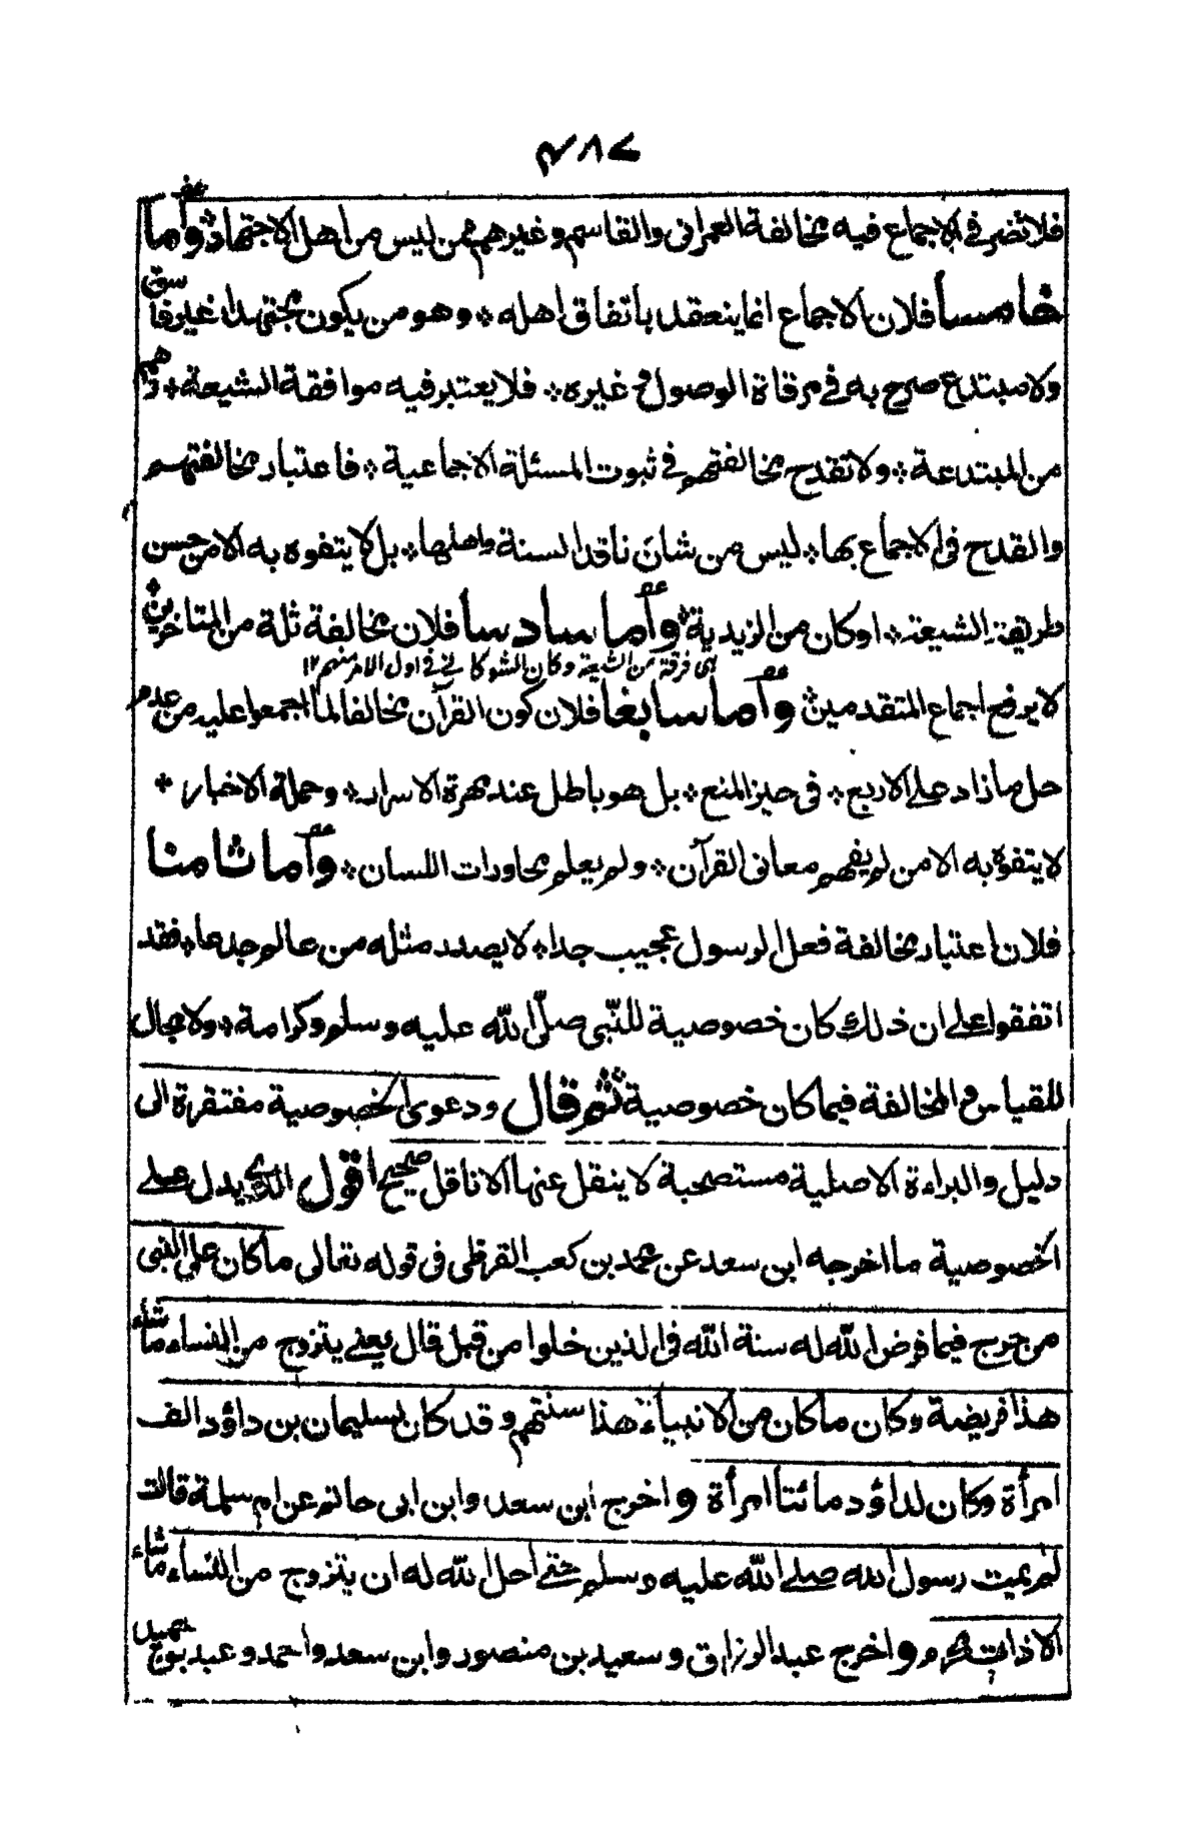 ٤٨٧
فلا تضر فی الاجماع فیه مخالفة العمرانی والقاسم وغیرهم ممن لیس من اهل الاجتهاد واما
خامسا فلان الاجماع انما ینعقد باتفاق اهله * وهو من یکون مجتهدا غیر فاسق
ولا مبتدع صرح به فی مرقاة الوصول وغیره * فلا یعتبر فیه موافقة الشیعة * وهم
من المبتدعة * ولا تقدح مخالفتهم فی ثبوت المسئلة الاجماعیة * فاعتبار مخالفتهم
والقدح فی الاجماع بها * لیس من شان ناقد السنة واهلها * بل لا یتفوه به الا من حسن
طریقة الشیعة * او کان من الزیدیة * واما سادسا فلان مخالفة ثلة من المتاخرین *
هی فرقة من الشیعة وکان الشوکانی فی اول الامر منهم ١٢
لا یرفع اجماع المتقدمین * واما سابعا فلان کون القرآن مخالفا لما اجمعوا علیه من عدم
حل ما زاد علی الاربع * فی حیز المنع * بل هو باطل عند مهرة الاسرار * وحملة الاخبار *
لا یتفوه به الا من لم یفهم معانی القرآن * ولم یعلم محاورات اللسان * واما ثامنا
فلان اعتبار مخالفة فعل الرسول عجیب جدا * لا یصدر مثله من عالم وجد عا * فقد
اتفقوا علی ان ذلک کان خصوصیة للنبی صلی الله علیه وسلم وکرامة * ولا مجال
للقیاس والمخالفة فیما کان خصوصیة * ثم قال ودعوی الخصوصیة مفتقرة الی
دلیل والبراءة الاصلیة مستصحبة لا ینقل عنها الا ناقل صحیح اقول الذی یدل علی
الخصوصیة ما اخرجه ابن سعد عن محمد بن کعب القرظی فی قوله تعالی ما کان علی النبی
من حرج فیما فرض الله له سنة الله فی الذین خلوا من قبل قال یعنی یتزوج من النساء ما شاء
هذا فریضة وکان ما کان من الانبیاء هذا سنتهم وقد کان لسلیمان بن داؤد الف
امرأة وکان لداؤد مائتا امرأة واخرج ابن سعد وابن ابی حاتم عن ام سلمة قالت
لم یمت رسول الله صلی الله علیه وسلم حتی احل الله له ان یتزوج من النساء ما شاء
الا ذات محرم واخرج عبد الرزاق وسعید بن منصور وابن سعد واحمد وعبد بن حمید